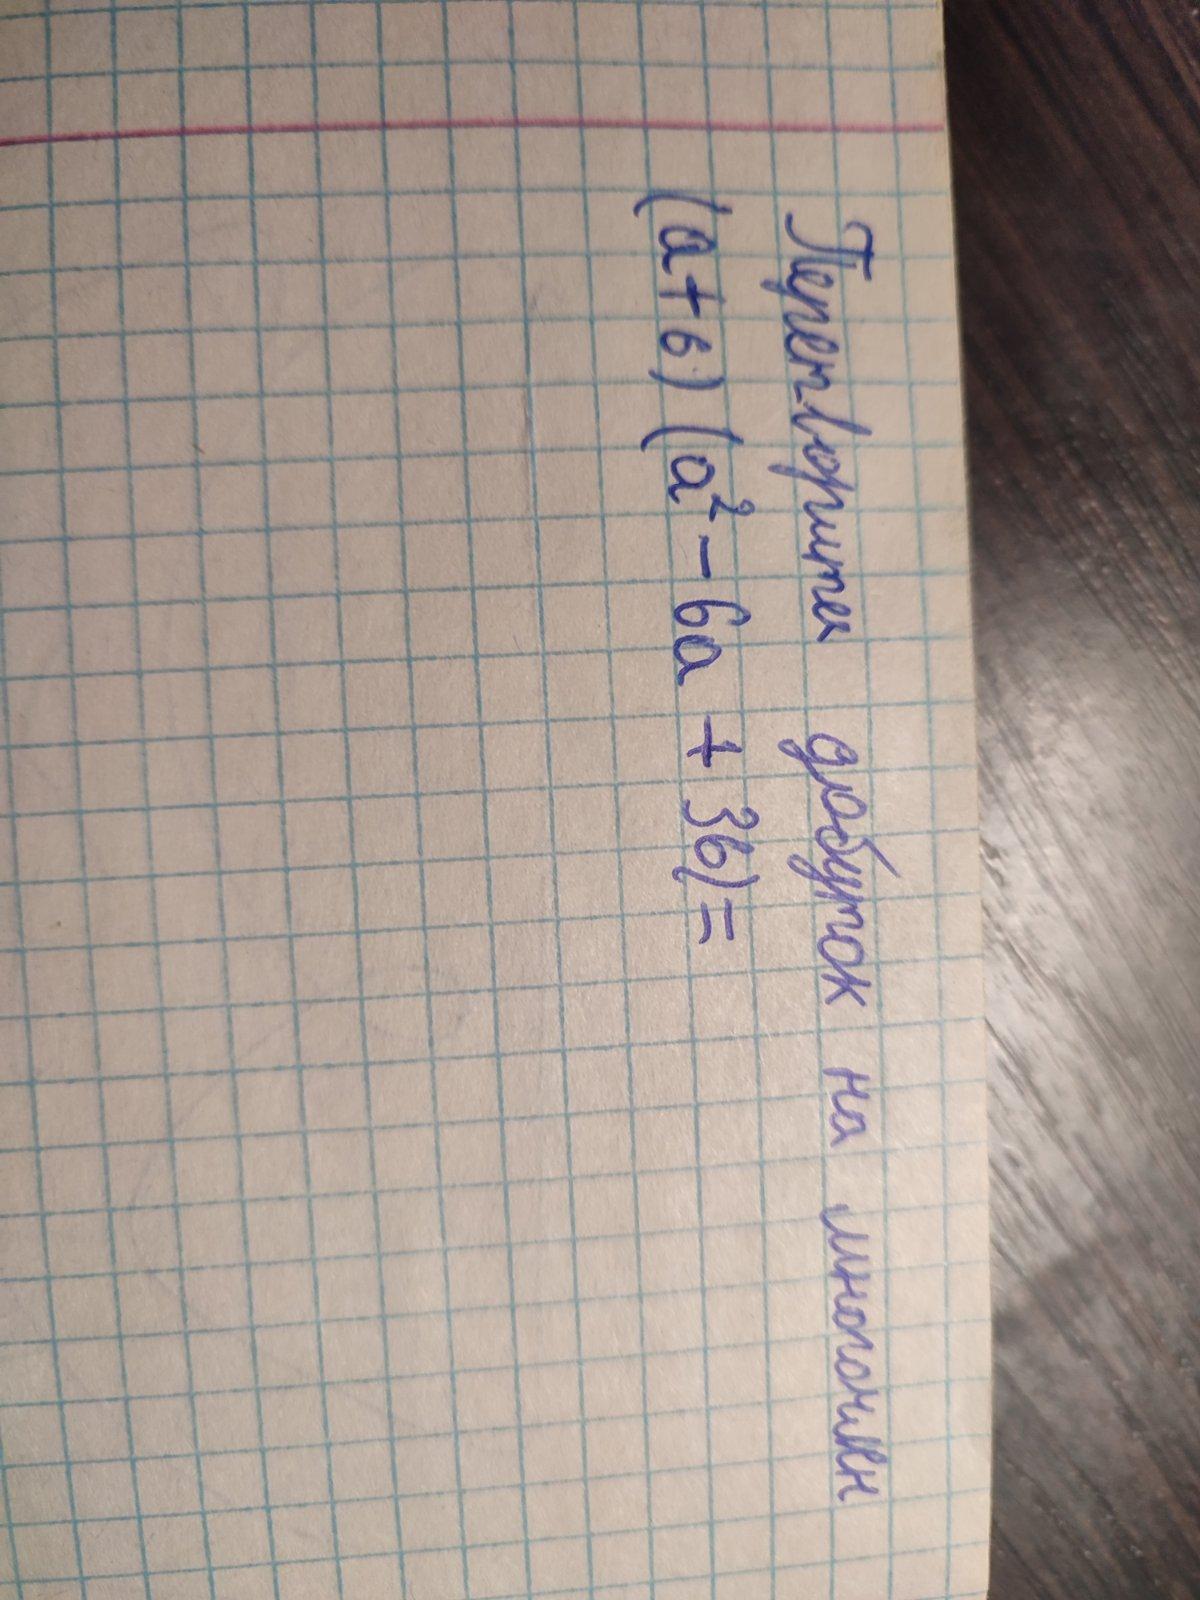 Перетворити добуток на многочлен
(a+в)(a²-6a+36)=